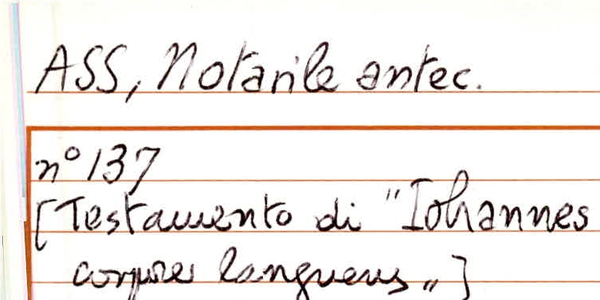 ASS, Notarile antec.
n° 137
[Testamento di "Iohannes
corpore languens"]